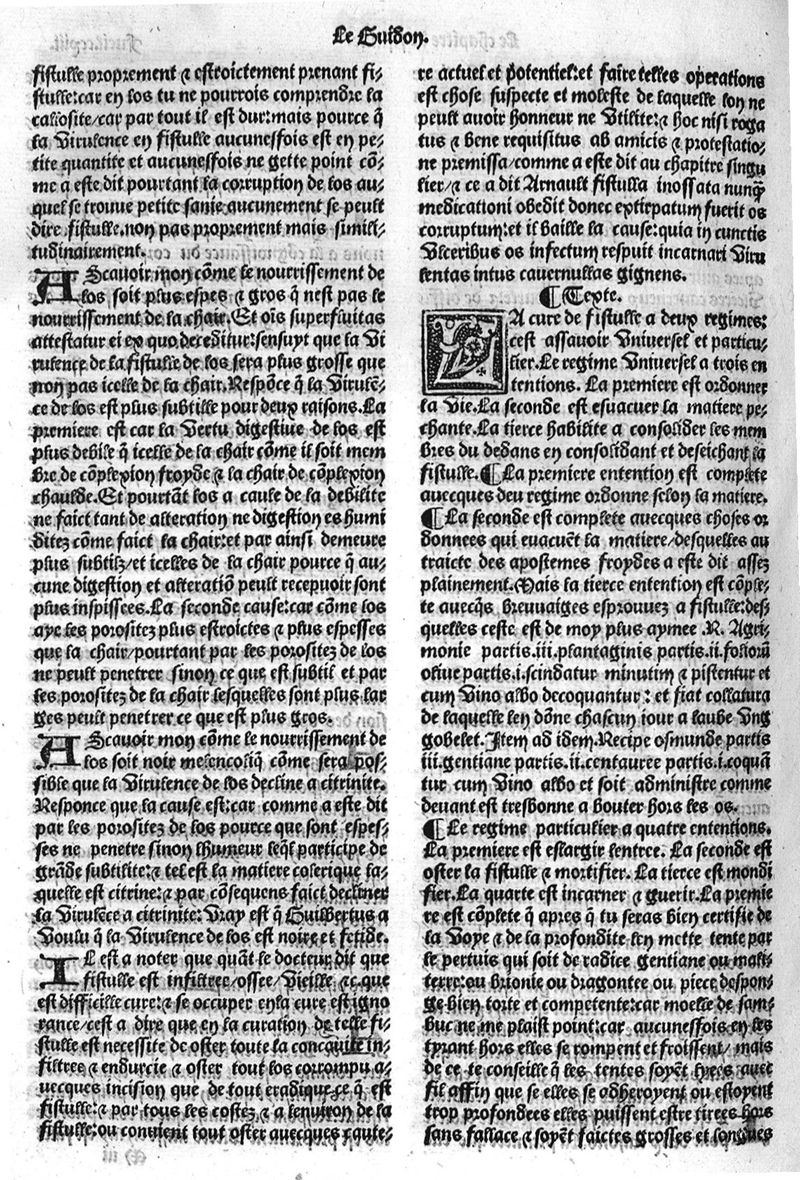 Le Guidon.
fistulle proprement ⁊ estroictement prenant fi⸗
stulle:car en los tu ne pourrois comprendre la
calliosite/car par tout il est dur:mais pource q̃
la Virulence en fistulle aucunesfois est en pe⸗
tite quantite et aucunesfois ne gette point cõ⸗
me a este dit pourtant la corruption de los au⸗
quel se trouue petite sanie aucunement se peult
dire fistulle.non pas proprement mais simili⸗
tudinairement.
AScauoir mon cõme le nourrissement de
los soit plus espes ⁊ gros q̃ nest pas le
nourrissement de la chair.Et oĩs superfluitas
attestatur ei ex quo deceditur:sensuyt que la Vi
rulence de la fistulle de los sera plus grosse que
non pas icelle de la chair.Respõce q̃ la Virulẽ⸗
ce de los est plus subtille pour deux raisons.La
premiere est car la Vertu digestiue de los est
plus debile q̃ icelle de la chair cõme il soit mem
bre de cõplexion froyde ⁊ la chair de cõplexion
chaulde.Et pourtãt los a cause de la debilite
ne faict tant de alteration ne digestion es humi
ditez cõme faict la chair:et par ainsi demeure
plus subtilz/et icelles de la chair pource q̃ au⸗
cune digestion et alteratiõ peult recepuoir sont
plus inspissees.La seconde cause:car cõme los
aye les porositez plus estroictes ⁊ plus espesses
que la chair/pourtant par les porositez de los
ne peult penetrer sinon ce que est subtil et par
les porositez de la chair lesquelles sont plus lar
ges peult penetrer ce que est plus gros.
AScauoir mon cõme le nourrissement de
los soit noir melencoliq̃ cõme sera pos⸗
sible que la Virulence de los decline a citrinite.
Responce que la cause est:car comme a este dit
par les porositez de los pource que sont espes⸗
ses ne penetre sinon lhumeur leq̃l participe de
grãde subtilite:⁊ tel est la matiere colerique la⸗
quelle est citrine:⁊ par cõsequens faict decliner
la Virulẽce a citrinite: Vray est q̃ Guilbertus a
Voulu q̃ la Virulence de los est noire et fetide.
IL est a noter que quãt le docteur dit que
fistulle est infiltree/ossee/Vieille ⁊c.que
est difficille cure:⁊ se occuper enla cure est igno
rance/cest a dire que en la curation de telle fi⸗
stulle est necessite de oster toute la concauite in⸗
filtree ⁊ endurcie ⁊ oster tout los corrompu a⸗
uecques incision que de tout eradique ce q̃ est
fistulle:⁊ par tous les costez ⁊ a lenuiron de la
fistulle:ou conuient tout oster auecques caute⸗
re actuel et potentiel:et faire telles operations
est chose suspecte et moleste de laquelle lon ne
peult auoir honneur ne Vtilite:⁊ hoc nisi roga
tus ⁊ bene requisitus ab amicis ⁊ protestatio⸗
ne premissa/comme a este dit au chapitre singu
lier/⁊ ce a dit Arnault fistulla inossata nunq̃
medicationi obedit donec extirpatum fuerit os
corruptum:et il baille la cause:quia in cunctis
Vlceribus os infectum respuit incarnari Viru
lentas intus cauernullas gignens.
¶Texte.
LA cure de fistulle a deux regimes:
cest assauoir Vniuersel et particu⸗
lier.Le regime Vniuersel a trois en
tentions. La premiere est ordonner
la Vie.La seconde est esuacuer la matiere pe⸗
chante.La tierce habilite a consolider les mem
bres du dedans en consolidant et deseichant la
fistulle.¶La premiere entention est complete
auecques deu regime ordonne selon la matiere.
¶La seconde est complete auecques choses or
donnees qui euacuẽt la matiere/desquelles au
traicte des apostemes froydes a este dit assez
plainement.Mais la tierce entention est cõple⸗
te auecq̃s breuuaiges esprouuez a fistulle:des⸗
quelles ceste est de moy plus aymee .℞. Agri⸗
monie partis.iii.plantaginis partis.ii.foliorũ
oliue partis.i.scindatur minutim ⁊ pistentur et
cum Vino albo decoquantur : et fiat collatura
de laquelle len dõne chascun iour a laube Vng
gobelet.Item ad idem.Recipe osmunde partis
iii.gentiane partis.ii.centauree partis.i.coquã
tur cum Vino albo et soit administre comme
deuant est tresbonne a bouter hors les os.
¶Le regime particulier a quatre ententions.
La premiere est eslargir lentree. La seconde est
oster la fistulle ⁊ mortifier. La tierce est mondi
fier.La quarte est incarner ⁊ guerir.La premie
re est cõplete q̃ apres q̃ tu seras bien certifie de
la Voye ⁊ de la profondite len mette tente par
le pertuis qui soit de radice gentiane ou mali⸗
terre:ou brionie ou dragontee ou piece despon⸗
ge bien torte et competente:car moelle de sam⸗
buc ne me plaist point:car aucunesfois en les
tyrant hors elles se rompent et froissent/ mais
de ce te conseille q̃ les tentes soyẽt lyees auec
fil affin que se elles se adheroyent ou estoyent
trop profondees elles puissent estre tirees hors
sans fallace ⁊ soyẽt faictes grosses et longues